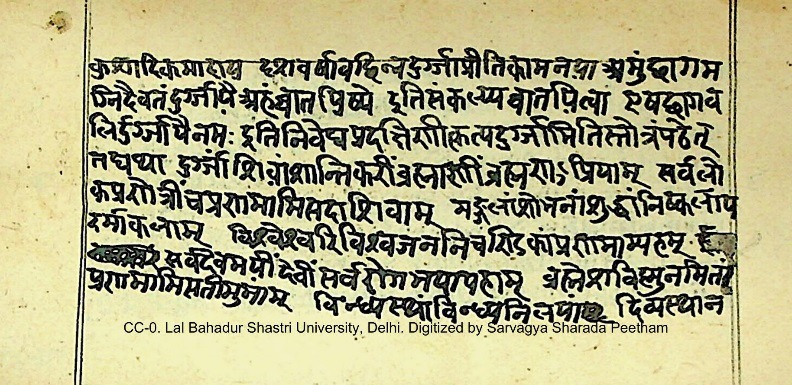 कुशादिकमादाय दशवर्षावछिन्नदुर्ग्गाप्रीतिकामनया अमुंछागम
ग्निदैवतंदुर्ग्गायैअहंघातयिष्ये इतिसंकल्प्यघातयित्वा एषछागव
लिर्दुर्ग्गायैनमः इतिनिवेद्यप्रदक्षिणीकृत्यदुर्ग्गामितिस्तोत्रंपठेत्
तद्यथा दुर्ग्गांशिवांशान्तिकरींब्रह्माणींब्रह्मणःप्रियाम् सर्वलो
कप्रणेत्रींचप्रणमामिसदाशिवाम् मङ्गलांशोभनांशुद्धांनिष्कलांप
रमांकलाम् विश्वेश्वरिविश्वजननिचण्डिकांप्रणमाम्यहम्
सर्वदेवमयींदेवींसर्वरोगभयापहाम् ब्रह्मेशविस्मुनमितां
प्रणमामिसतीमुमाम् विन्ध्यस्थांविन्ध्यनिलयां दिव्यस्थान
CC-0. Lal Bahadur Shastri University, Delhi. Digitized by Sarvagya Sharada Peetham